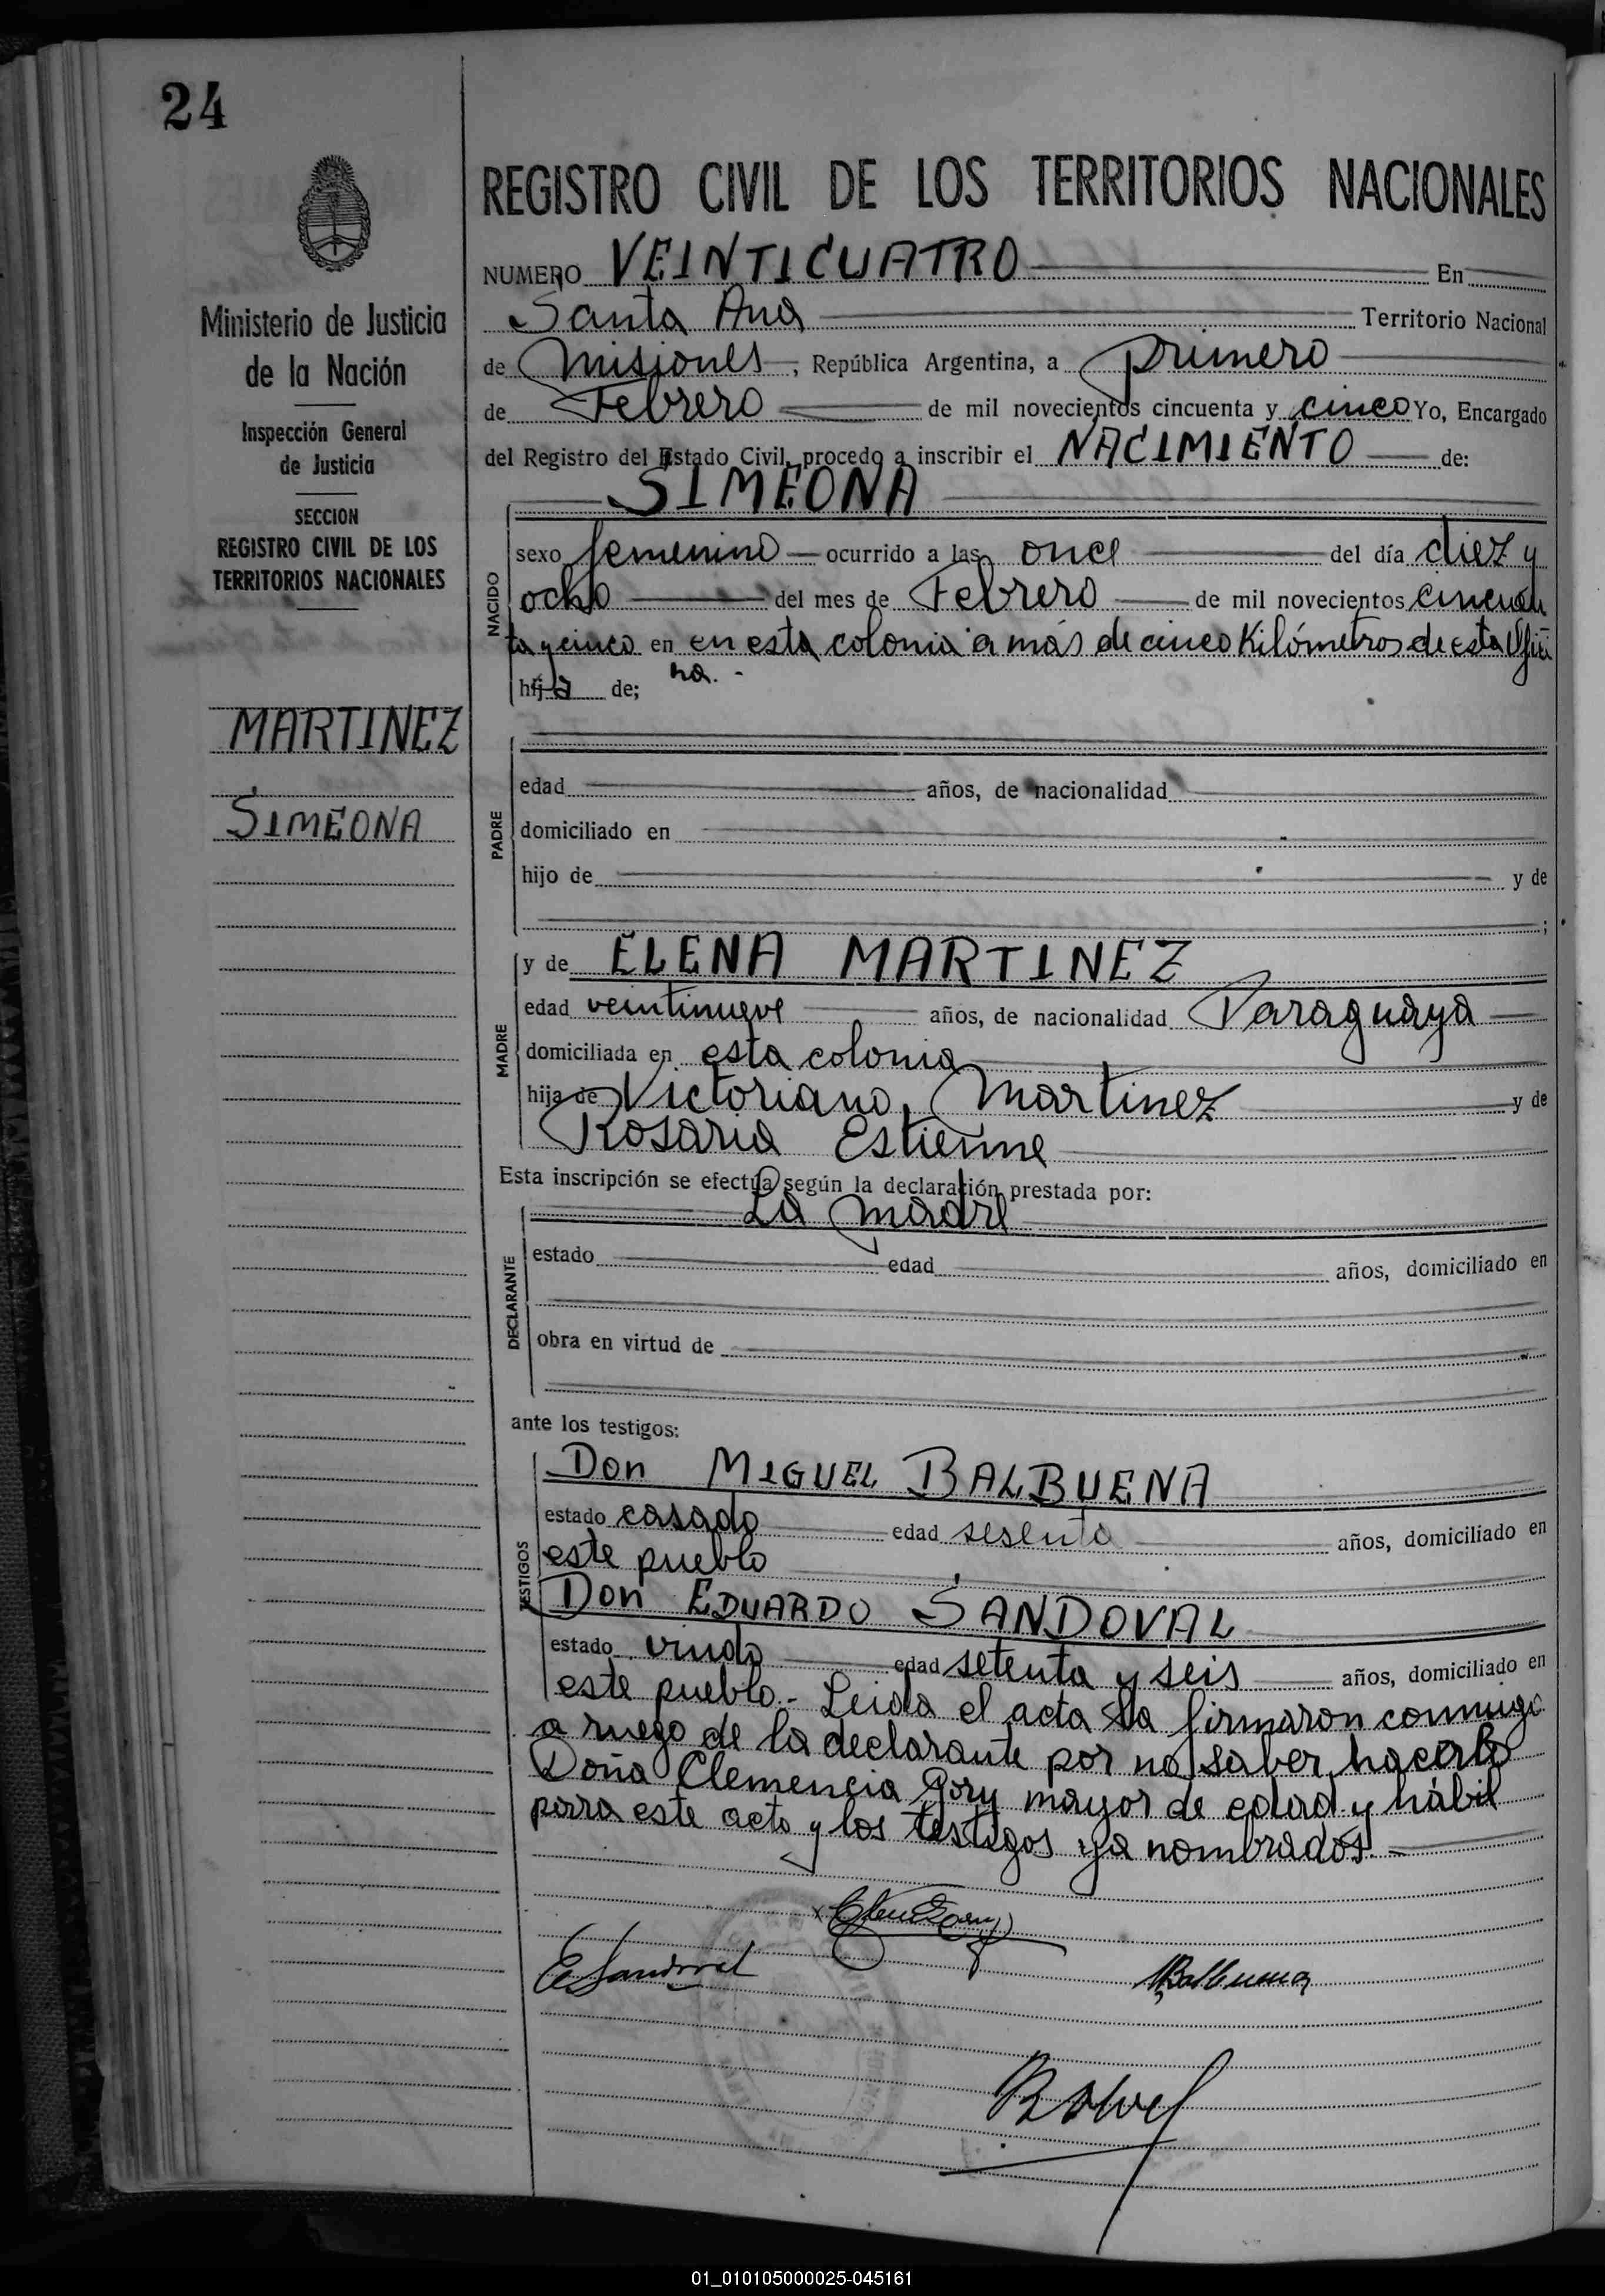 24
REGISTRO CIVIL DE LOS TERRITORIOS NACIONALES
Ministerio de Justicia
de la Nación
Inspección General
de Justicia
SECCION
REGISTRO CIVIL DE LOS
TERRITORIOS NACIONALES
MARTINEZ
SIMEONA
NUMERO VEINTICUATRO En
Santa Ana Territorio Nacional
de Misiones, República Argentina, a primero
de Febrero de mil novecientos cincuenta y cinco Yo, Encargado
del Registro del Estado Civil, procedo a inscribir el NACIMIENTO de:
SIMEONA
NACIDO
sexo femenino ocurrido a las once del día diez y
ocho del mes de Febrero de mil novecientos cincuen
ta y cinco en en esta colonia a más de cinco Kilómetros de esta Ofici
na.-
hija de;
PADRE
edad años, de nacionalidad
domiciliado en
hijo de y de
;
MADRE
y de ELENA MARTINEZ
edad veintinueve años, de nacionalidad Paraguaya
domiciliada en esta colonia
hija de Victoriano Martinez y de
Rosaria Estienne
Esta inscripción se efectúa según la declaración prestada por:
La madre
DECLARANTE
estado edad años, domiciliado en
obra en virtud de
ante los testigos:
TESTIGOS
Don MIGUEL BALBUENA
estado casado edad sesenta años, domiciliado en
este pueblo
Don EDUARDO SANDOVAL
estado viudo edad setenta y seis años, domiciliado en
este pueblo.- Leida el acta la firmaron conmigo
a ruego de la declarante por no saber hacerlo
Doña Clemencia Gory mayor de edad y hábil
para este acto y los testigos ya nombrados.-
E Sandoval
MBalbuena
01_010105000025-045161